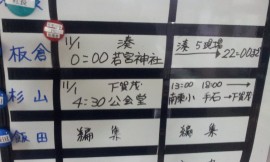 板倉 11/1 湊 湊 5現場
0:00 若宮神社 22:00
杉山 11/1 下賀茂 13:00 18:00
4:30 公会堂 南東小 手石→下賀茂
飯田 編集 編集